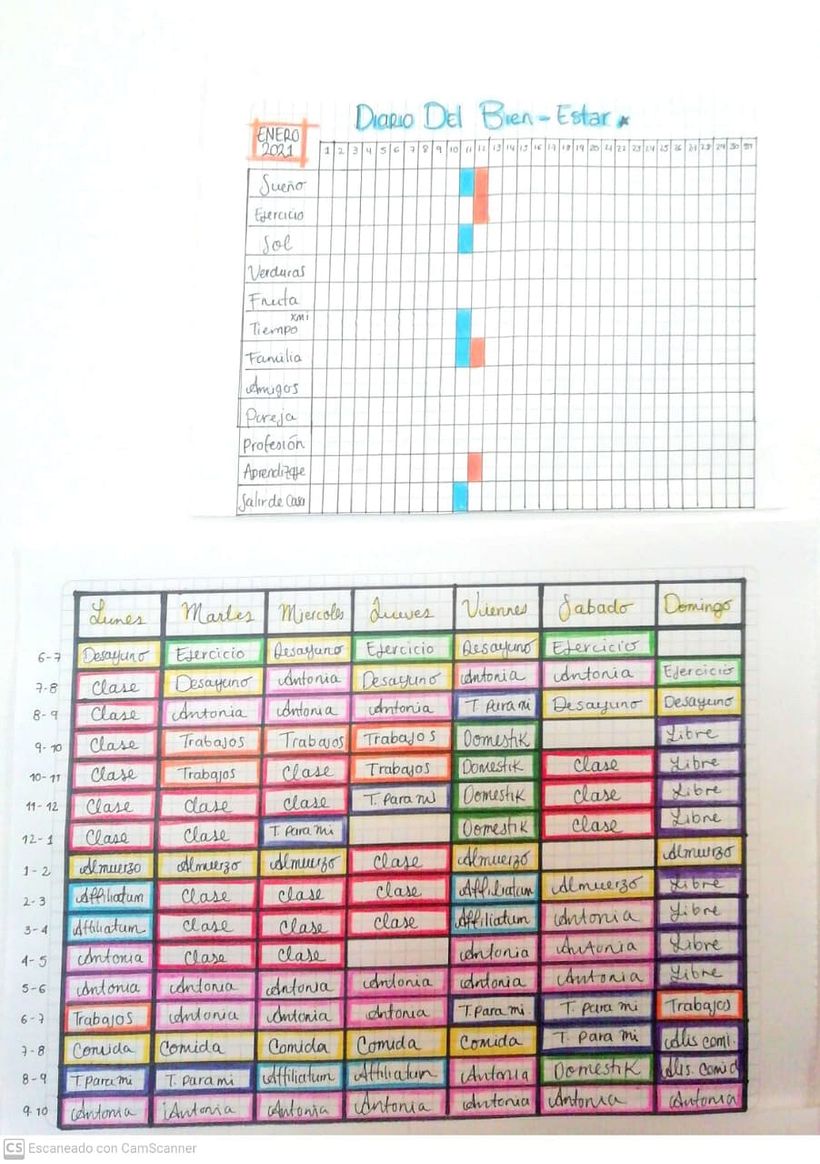 Diario Del Bien-Estar
ENERO
2021
1 2 3 4 5 6 7 8 9 10 11 12 13 14 15 16 17 18 19 20 21 22 23 24 25 26 27 28 29 30 31
Sueño
Ejercicio
Sol
Verduras
Fruta
Tiempo xmi
Familia
Amigos
Pareja
Profesión
Aprendizaje
Salir de Casa
Lunes Martes Miercoles Jueves Viernes Sabado Domingo
6-7 Desayuno Ejercicio Desayuno Ejercicio Desayuno Ejercicio
7-8 Clase Desayuno Antonia Desayuno Antonia Antonia Ejercicio
8-9 Clase Antonia Antonia Antonia T. Para mi Desayuno Desayuno
9-10 Clase Trabajos Trabajos Trabajos Domestik Libre
10-11 Clase Trabajos Clase Trabajos Domestik Clase Libre
11-12 Clase Clase Clase T. Para mi Domestik Clase Libre
12-1 Clase Clase T. Para mi Domestik Clase Libre
1-2 Almuerzo Almuerzo Almuerzo Clase Almuerzo Almuerzo
2-3 Affiliatum Clase Clase Clase Affiliatum Almuerzo Libre
3-4 Affiliatum Clase Clase Clase Affiliatum Antonia Libre
4-5 Antonia Clase Clase Antonia Antonia Libre
5-6 Antonia Antonia Antonia Antonia Antonia Antonia Libre
6-7 Trabajos Antonia Antonia Antonia T. Para mi. T. Para mi Trabajos
7-8 Comida Comida Comida Comida Comida T. Para mi Alis comi.
8-9 T. Para mi T. Para mi Affiliatum Affiliatum Antonia Domestik Alis. Comid
9-10 Antonia Antonia Antonia Antonia Antonia Antonia Antonia
CS Escaneado con CamScanner